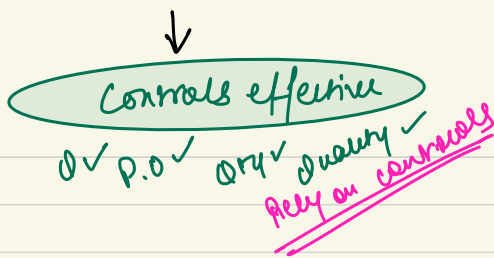 Controls effective
P.O ✓ Qty ✓ Quality ✓
Rely on controls